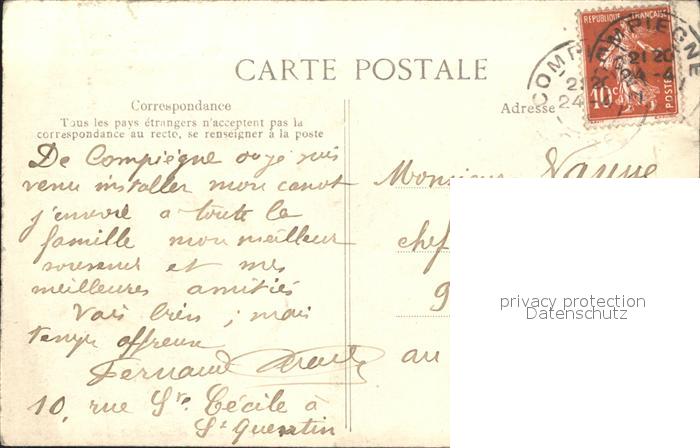 CARTE POSTALE
REPUBLIQUE FRANÇAISE
10c POSTES
COMPIEGNE
COMPIEGNE
21 20
24 -4
2120
24
Correspondance
Tous les pays étrangers n'acceptent pas la
correspondance au recto, se renseigner à la poste
Adresse
De Compiègne ou je suis
venu installer mon canot
j'envoie a toute la
famille mon meilleur
souvenir et mes
meilleures amitiés
Vais bien ; mais
temps affreux
Fernand
10, rue Ste Cécile à
St Quentin
Monsieur
chef
9
au
privacy protection
Datenschutz